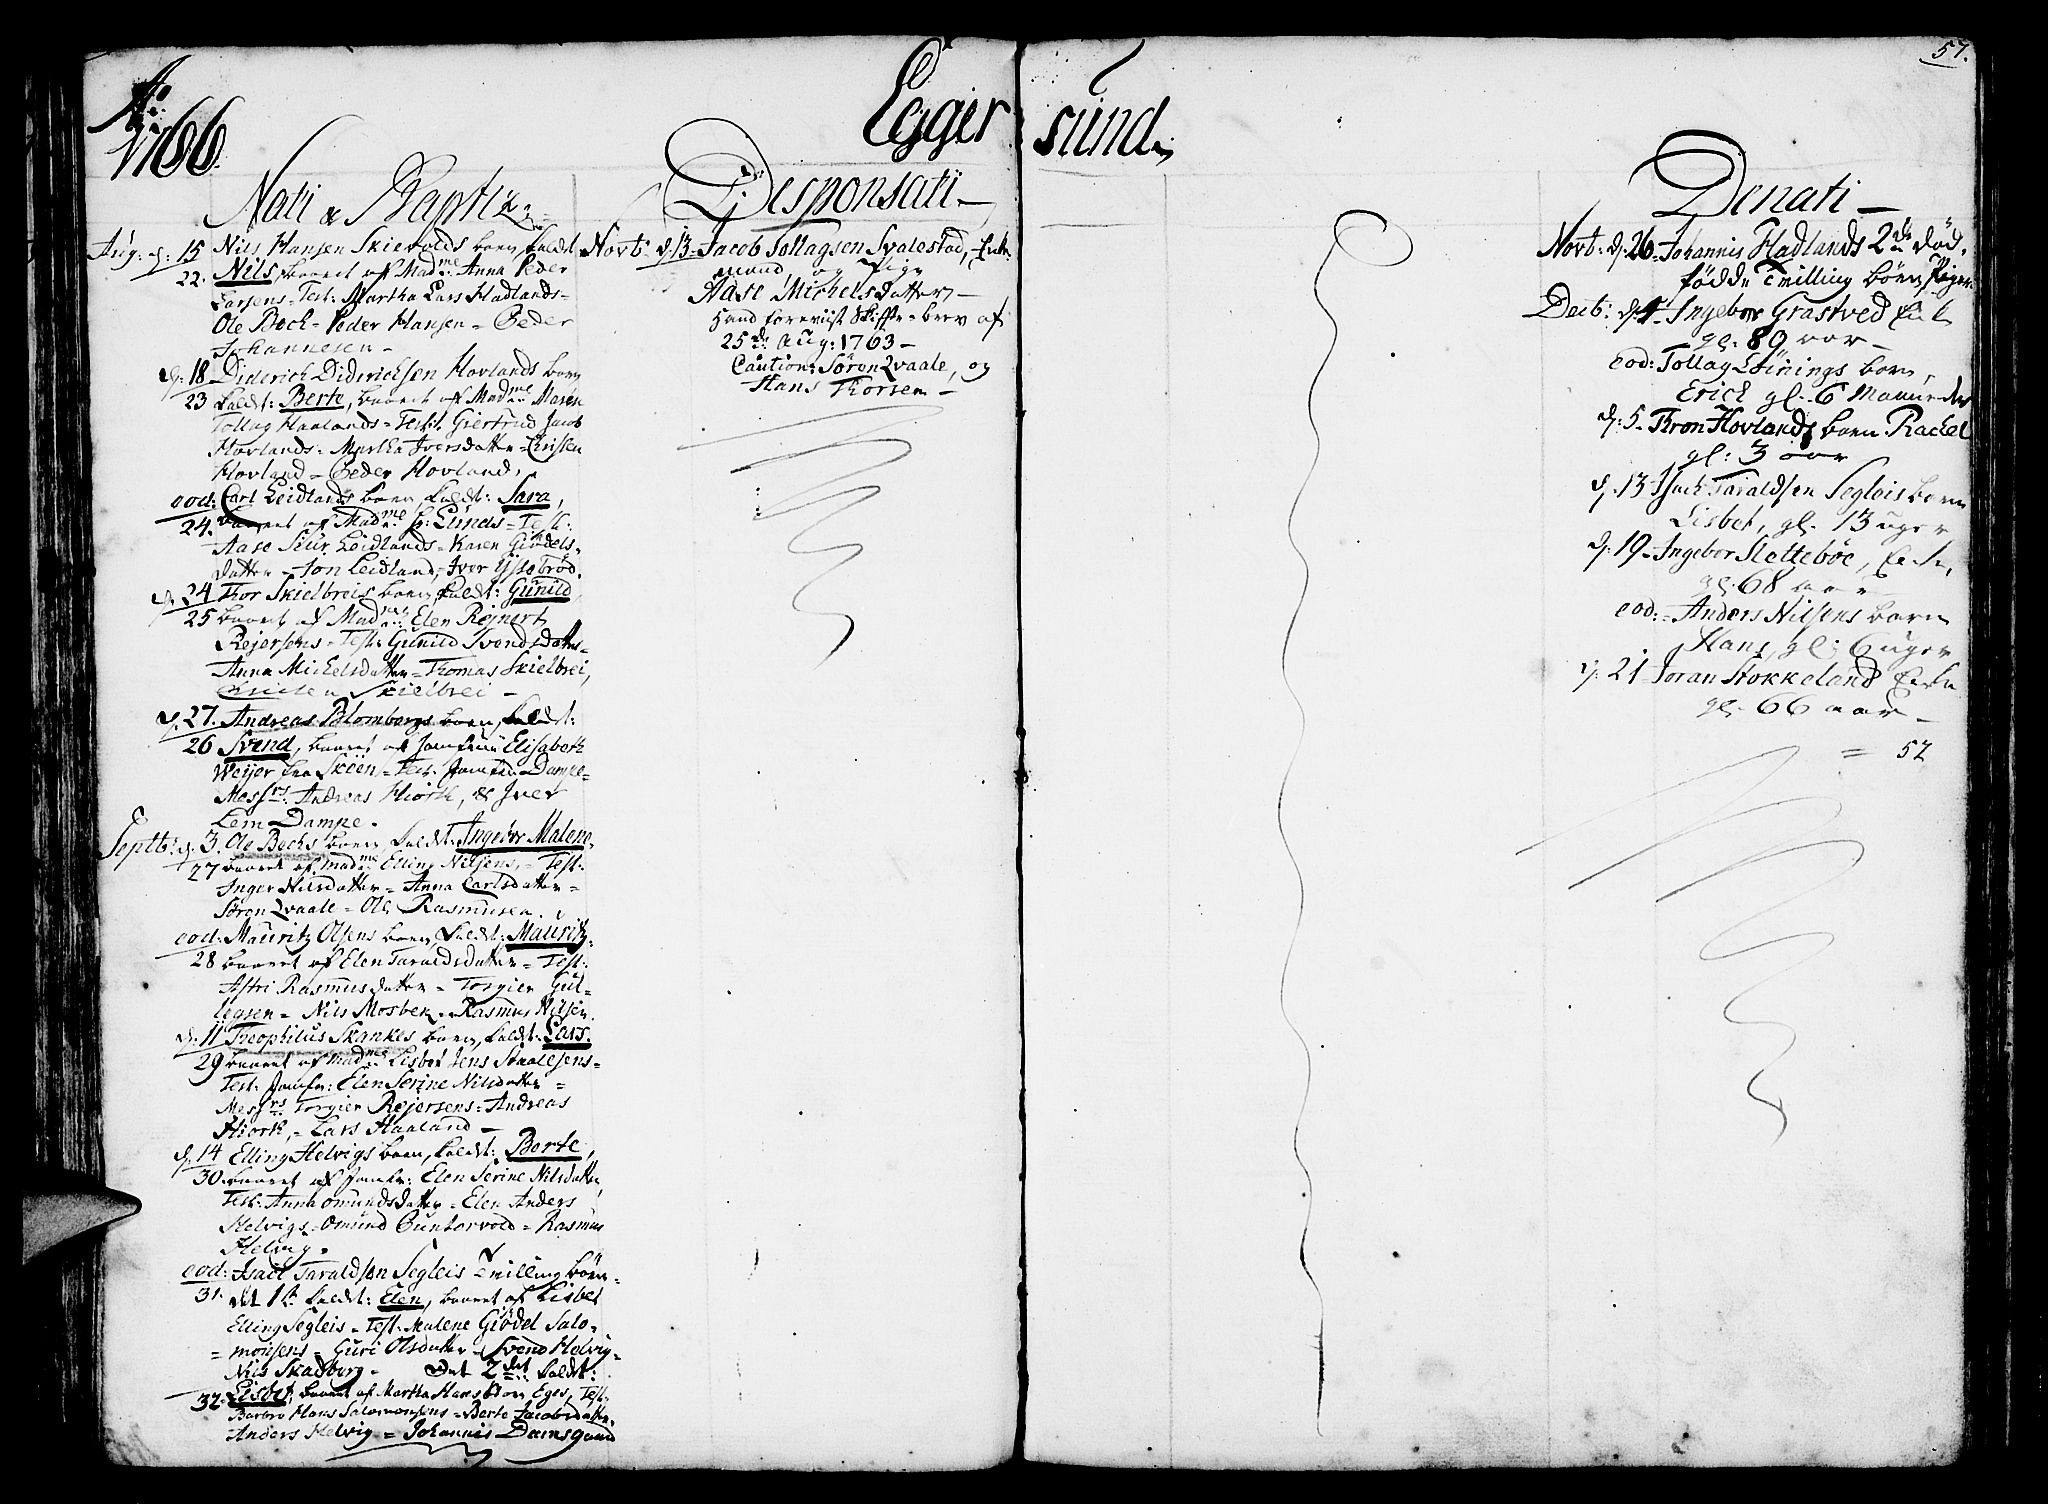 Ao
1766.
Egger sund.
57.
Nati & Baptiz:
Aug: d: 15 Nils Hansen Skievolds barn, kaldt
22. Nils, baaret af Madme Anna Peder
Larsens = Test: Martha Lars Hadlands =
Ole Boch = Peder Hansen = Peder
Johannesen -
d: 18 Diderich Diderichsen Hovlands barn
23 kaldt: Berte, baaret af Madme Maren
Tollag Haalands = Test: Giertrud Jacob
Hovlands = Martha Iversdatter = Christen
Hovland = Peder Hovland,
eod: Carl Leidlands barn, kaldt: Sara,
24. baaret af Madme Lunds = Test:
Aase Leidlands = Karen Giødels-
datter = Jon Leidland, = Iver Eyssebrød.
d. 24 Thor Skielbreis barn, kaldt: Gunild,
25 baaret af Madme Elen Rejnert
Rejersens = Test: Gunild Svendsdatter =
Anna Michelsdatter = Thomas Skielbrei,
Skielbrei -
d. 27. Andreas Blombergs barn, kaldt:
26 Svend, baaret af Jomfrue Elisabeth
Weijer fra Skeen = Test: Jomfru Dampe =
Messrs. Andreas Hiorth, & Iver
Lem Dampe.
Septb: d. 3. Ole Bochs barn, kaldt: Ingebor Malena,
27 baaret af Madme Elling Nilsens, = Test:
Inger Nilsdatter = Anna Carlsdatter =
Søron Qvaale = Ole Rasmusen.
eod: Mauritz Olsens barn, kaldt: Mauritz,
28 baaret af Elen Taraldsdatter = Test:
Astri Rasmusdatter = Torgier Gul-
legsen = Nils Mosbek = Rasmus Nilsen.
d. 11 Theophilus Skankes barn, kaldt: Lars.
29 baaret af Madme Lisbet Jens Staalesens =
Test: Jomfr: Elen Serine Nilsdatter =
Messrs Torgier Rejersens = Andreas
Hiorth, = Lars Haaland -
d. 14 Elling Helvigs barn, kaldt: Berte,
30. baaret af Jomfr: Elen Serine Nilsdatter,
Test: Anna Omundsdatter = Elen Anders
Helvigs = Omund Guntorvold = Rasmus
Helvig.
eod: Isach Taraldsen Segleis Tvilling børn =
31. det 1te kaldt: Elen, baaret af Lisbet
Elling Segleis = Test: Malene Giødel Salo-
= monsens = Guri Olsdatter = Svend Helvig =
Nils Skadberg - Det 2det kaldt:
32. Lisbet, baaret af Martha Hans Eges, Test:
Barbro Hans Salomonsens = Berte Jacobsdatter,
Anders Helvig = Johannis Damsgaard
Disponsati -
Novb: d. 13 - Jacob Tollagsen Svalestad, Enke-
mand, og Pige
Aase Michelsdatter -
Hand foreviist Skifte-brev af
25de Aug: 1763 -
Caution: Søron Qvaale, og
Hans Thorsen -
Denati -
Novb: d. 26 - Johannis Hadlands 2de død-
fødde Tvilling børn, Piger
Decb: d. 1 - Ingebor Grastved Enke
gl: 89 aar -
eod: Tollag Lønings barn,
Erich gl. 6 Maaneder
d: 5 - Thron Hovlands barn Rachel
gl: 3 aar
d. 13 Isach Taraldsen Segleis barn
Lisbet, gl. 13 uger
d: 19 - Ingebor Slettebøe, Enke,
gl. 68 aar
eod: = Anders Nilsens barn
Hans, gl: 6 uger
d: 21 - Joran Stokkeland Enke
gl. 66 aar -
= 52